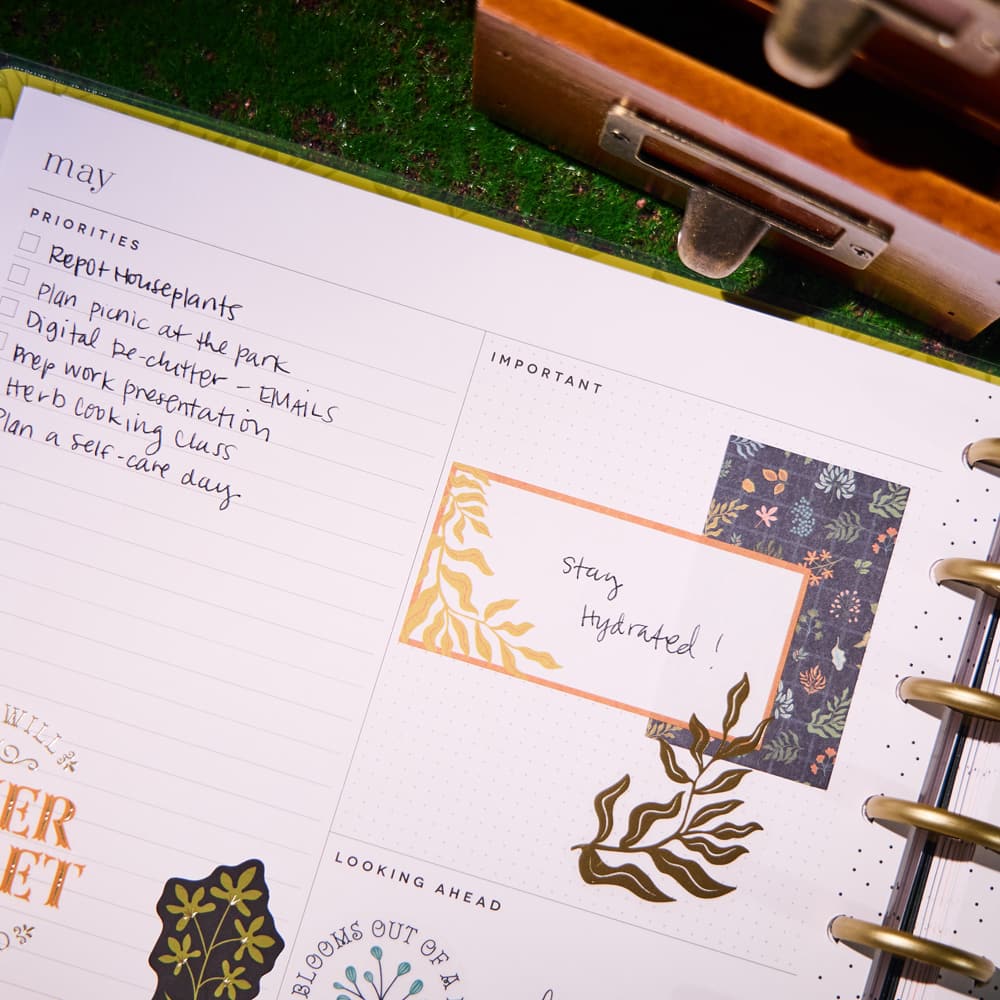 may
PRIORITIES
Repot Houseplants
Plan picnic at the park
Digital De-clutter - EMAILS
Prep work presentation
Herb Cooking Class
Plan a self-care day
IMPORTANT
Stay
Hydrated!
WILL
LOOKING AHEAD
BLOOMS OUT OF A